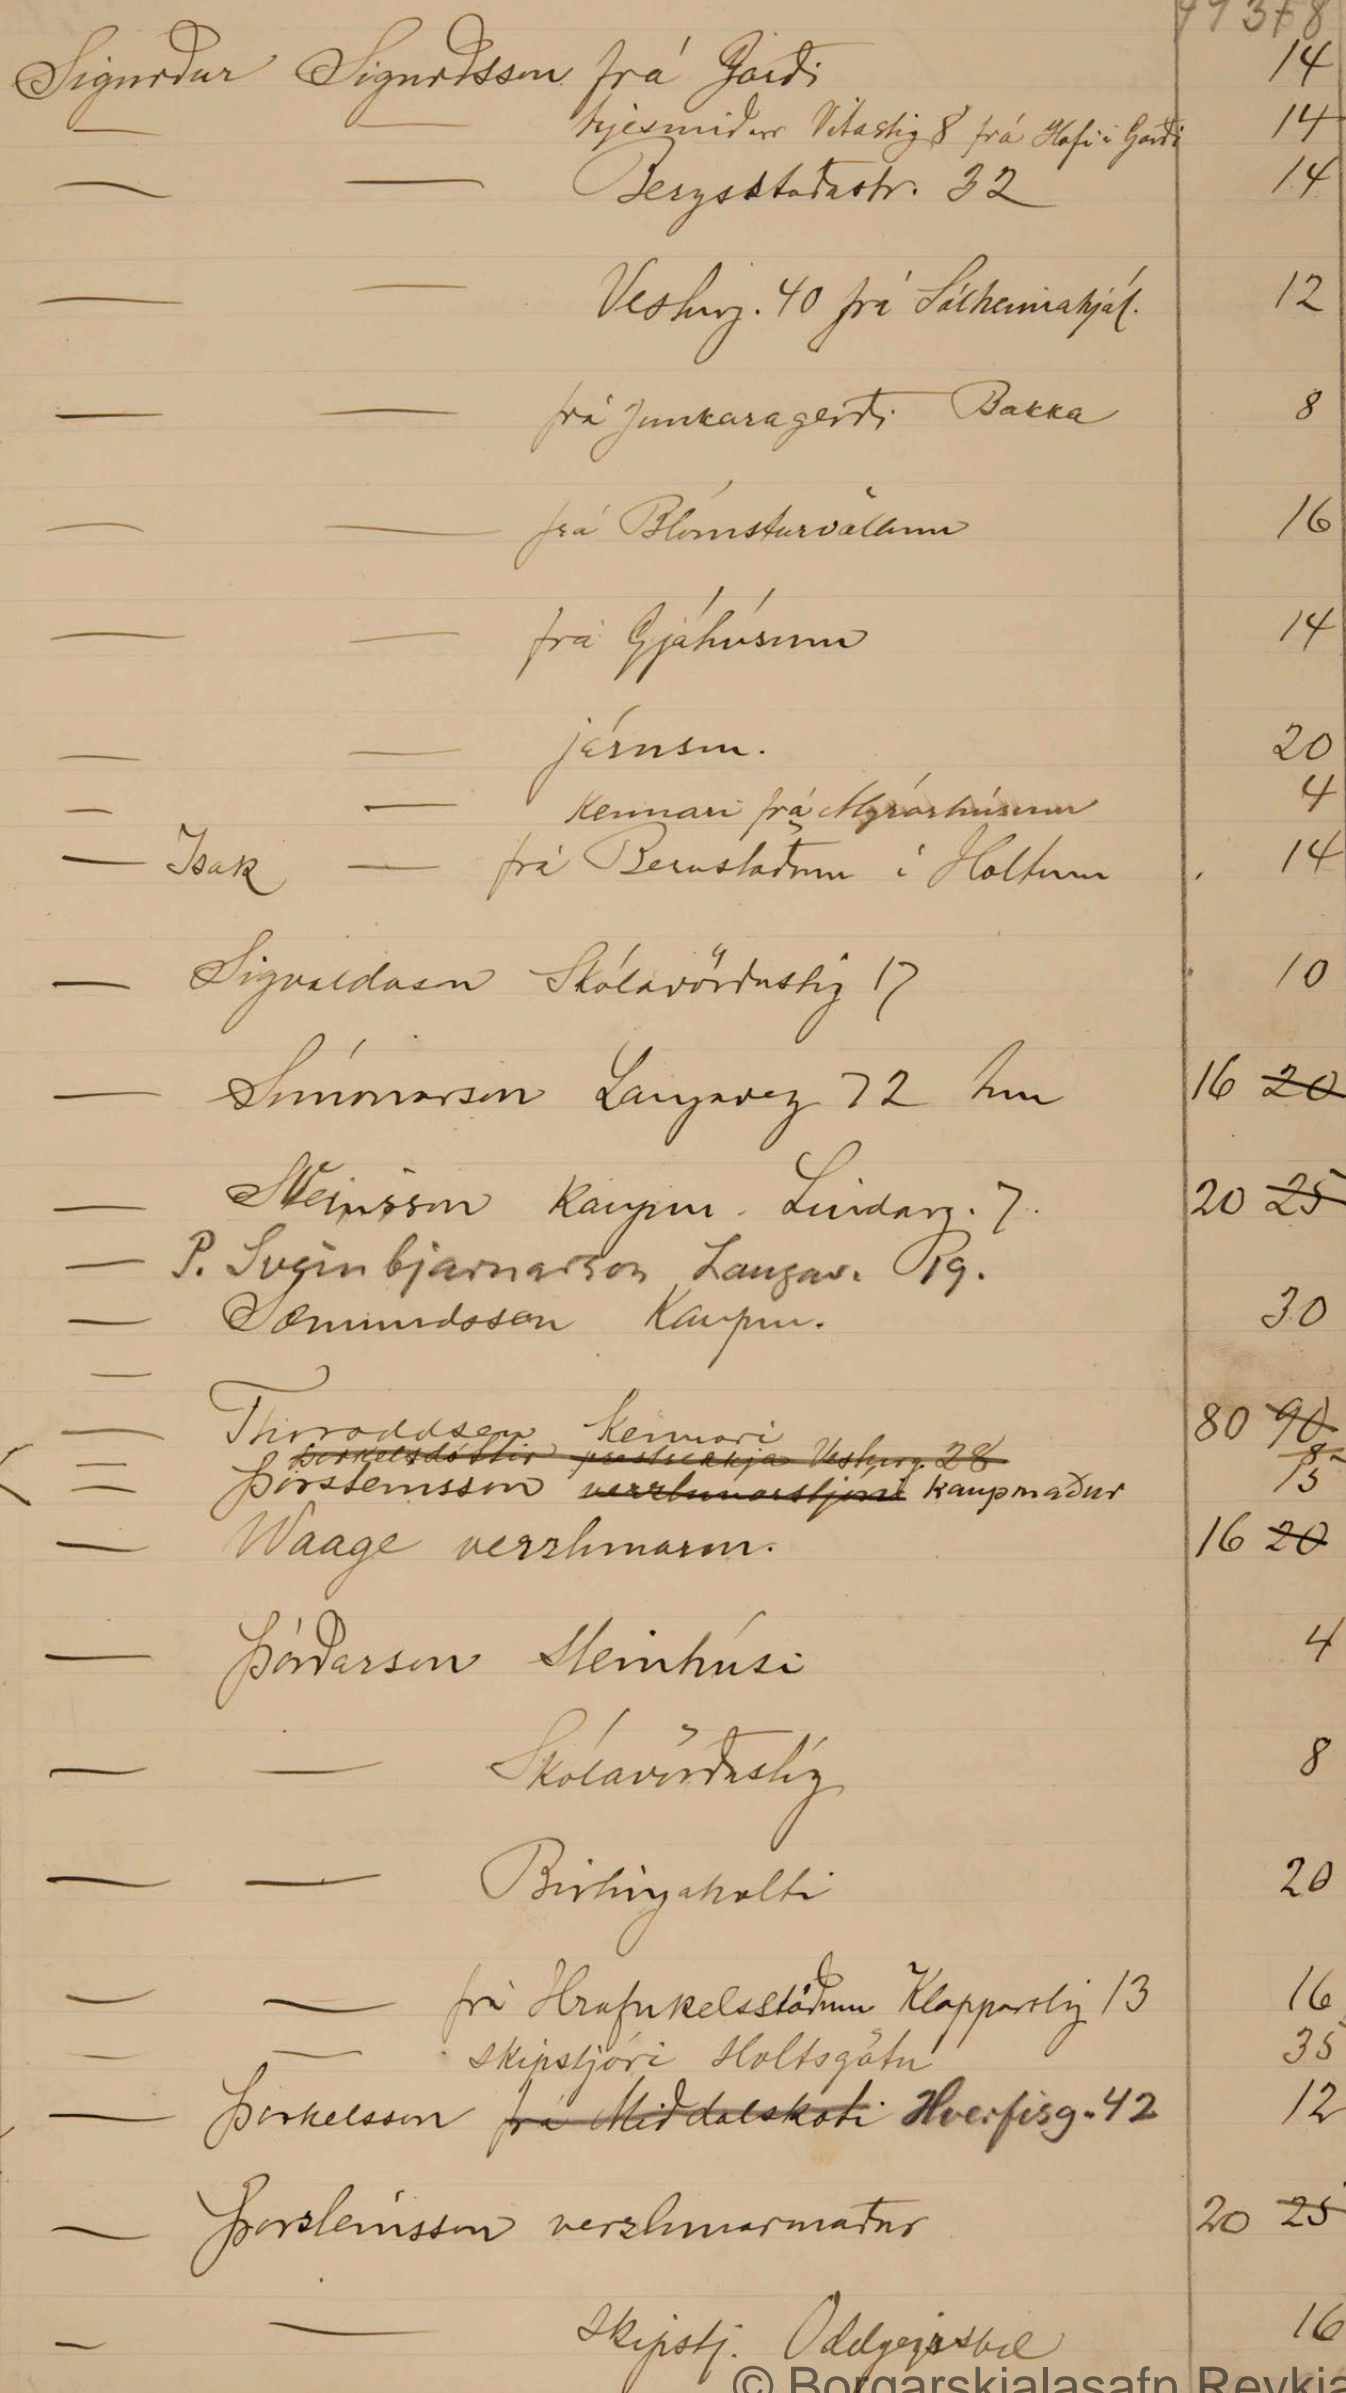 Sigurður Sigurðsson frá Gerði 14
— — trjesmiður Vitastíg 8 frá Hofi í Garði 14
— — Bergsstaðastr. 32 14
— — Vesturg. 40 frá Sólheimahjál. 12
— — frá Junkaragerði Bakka 8
— — frá Blómsturvöllum 16
— — frá Gjáhúsum 14
— — járnsm. 20
— — Kennari frá Mýrarhúsum 4
— Isak — frá Berustöðum í Holtum 14
— Sigvaldason Skólavörðustíg 17 10
— Símonarson Laugaveg 72 16 20
— Steinsson Kaupm. Lindarg. 7. 20 25
— P. Sveinbjarnarson Laugav. 19.
— Sæmundsson Kaupm. 30
—
— Thoroddsen Kennari 80 90
— Þorkelsdóttir prestsekkja Vesturg. 28 8
— Þorsteinsson verzlunarstjóri kaupmaður 15
— Waage verzlunarm. 16 20
— Þórðarson Steinhúsi 4
— — Skólavörðustíg 8
— — Birtingaholti 20
— — frá Hrafnkelsstöðum Klapparstíg 13 16
— — skipstjóri Holtsgötu 35
— Þorkelsson frá Miðdalskoti Hverfisg. 42 12
— Þorsteinsson verzlunarmaður 20 25
— — skipstj. Oddgeirsbæ 16
© Borgarskjalasafn Reykja